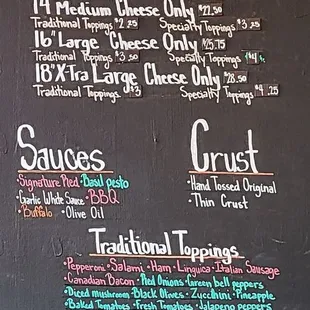 14" Medium Cheese Only $22.50
Traditional Toppings $2.25 Specialty Toppings $3.25
16" Large Cheese Only $25.75
Traditional Toppings $2.50 Specialty Toppings $4
18" X-Tra Large Cheese Only $28.50
Traditional Toppings $3 Specialty Toppings $4.25
Sauces
Crust
·Signature Red ·Basil pesto
·Garlic White Sauce ·BBQ
·Buffalo ·Olive Oil
·Hand Tossed Original
·Thin Crust
Traditional Toppings
·Pepperoni ·Salami ·Ham ·Linguica ·Italian Sausage
·Canadian Bacon ·Red Onions ·Green bell peppers
·Diced mushroom ·Black Olives ·Zucchini ·Pineapple
·Baked Tomatoes ·Fresh Tomatoes ·Jalapeno peppers